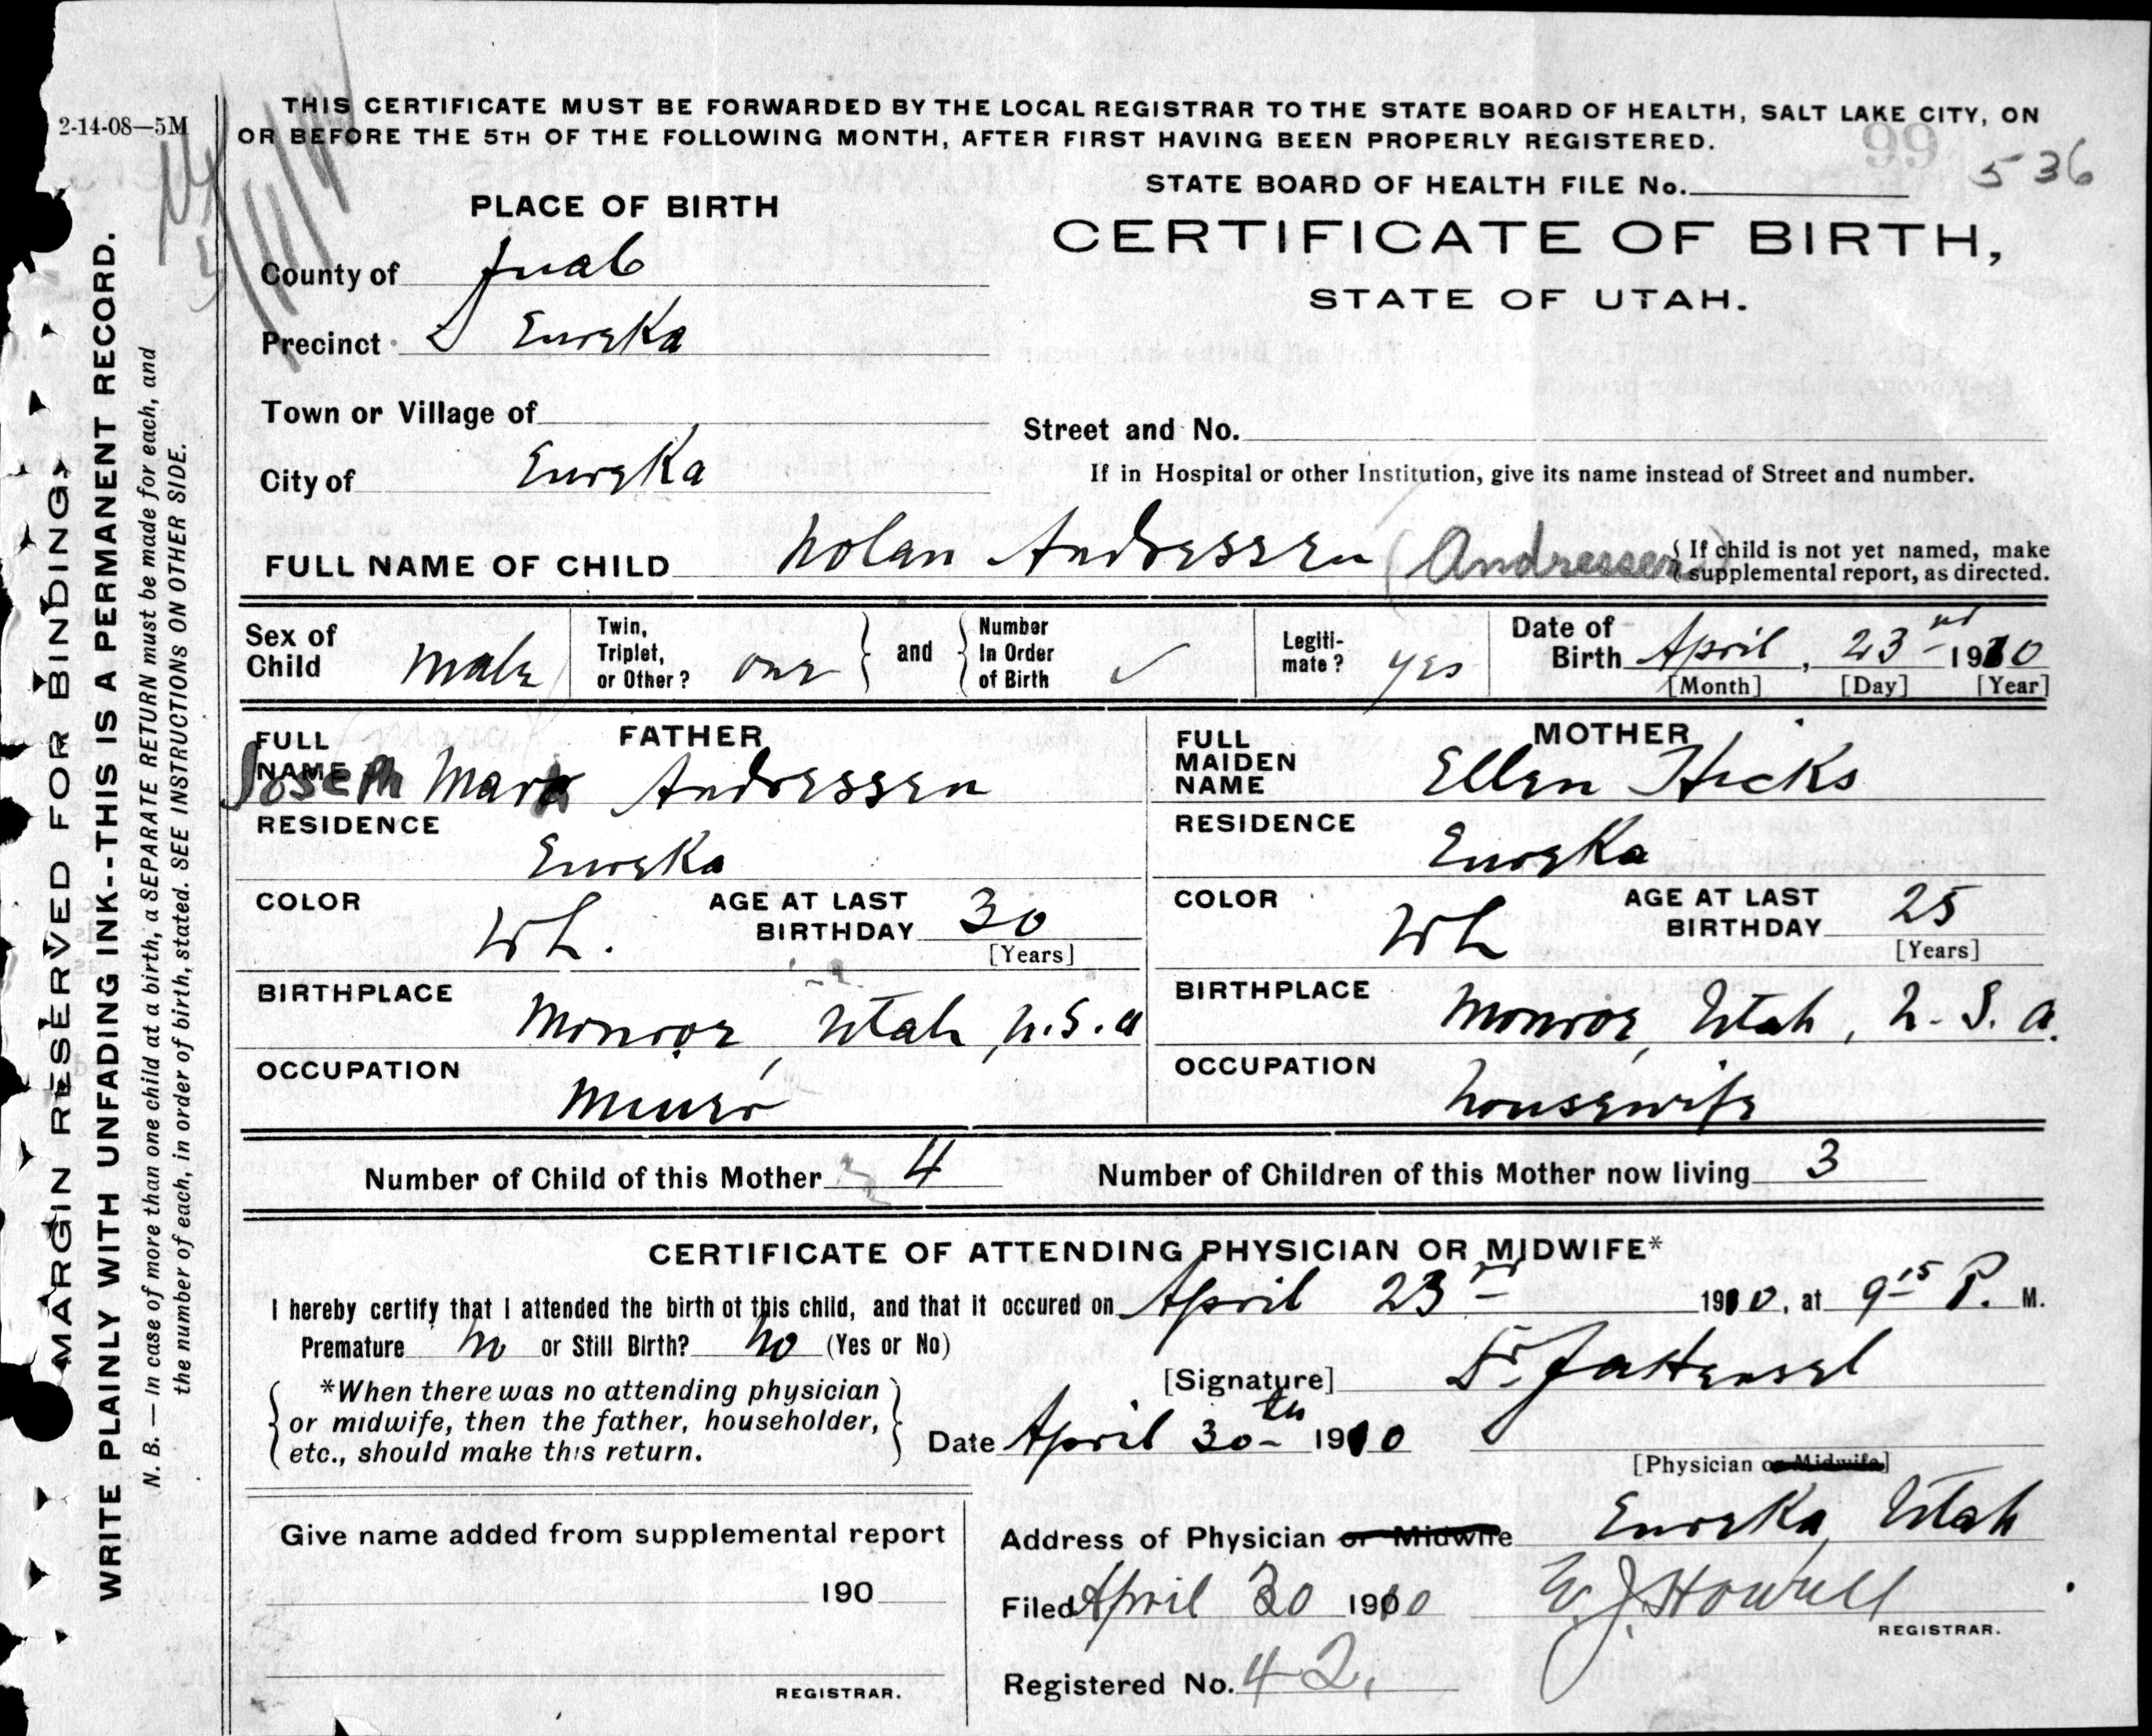 2-14-08—5M
THIS CERTIFICATE MUST BE FORWARDED BY THE LOCAL REGISTRAR TO THE STATE BOARD OF HEALTH, SALT LAKE CITY, ON
OR BEFORE THE 5TH OF THE FOLLOWING MONTH, AFTER FIRST HAVING BEEN PROPERLY REGISTERED.
99
STATE BOARD OF HEALTH FILE No. 536
CERTIFICATE OF BIRTH,
STATE OF UTAH.
PLACE OF BIRTH
County of Juab
Precinct Eureka
Town or Village of
City of Eureka
Street and No.
If in Hospital or other Institution, give its name instead of Street and number.
FULL NAME OF CHILD Nolan Andressen (Andressen)
If child is not yet named, make
supplemental report, as directed.
Sex of Child male
Twin, Triplet, or Other? one and Number In Order of Birth ✓
Legiti-mate? yes
Date of Birth April, 23rd 1910
[Month] [Day] [Year]
FATHER
FULL NAME Joseph Mark Andressen
RESIDENCE
Eureka
COLOR Wh. AGE AT LAST BIRTHDAY 30
[Years]
BIRTHPLACE
Monroe, Utah, U.S.a
OCCUPATION
Miner
MOTHER
FULL MAIDEN NAME Ellen Hicks
RESIDENCE
Eureka
COLOR Wh AGE AT LAST BIRTHDAY 25
[Years]
BIRTHPLACE
Monroe, Utah, U.S.a.
OCCUPATION
housewife
Number of Child of this Mother 4 Number of Children of this Mother now living 3
CERTIFICATE OF ATTENDING PHYSICIAN OR MIDWIFE*
I hereby certify that I attended the birth of this child, and that it occured on April 23rd 1910, at 9 15 P. M.
Premature no or Still Birth? no (Yes or No)
*When there was no attending physician
or midwife, then the father, householder,
etc., should make this return.
[Signature] Dr. Hensel
Date April 30th 1910
[Physician or Midwife]
Address of Physician or Midwife Eureka, Utah
Filed April 30 1910 E. J. Howell
REGISTRAR.
Registered No. 42.
Give name added from supplemental report
190
REGISTRAR.
MARGIN RESERVED FOR BINDING.
WRITE PLAINLY WITH UNFADING INK--THIS IS A PERMANENT RECORD.
N. B. — In case of more than one child at a birth, a SEPARATE RETURN must be made for each, and
the number of each, in order of birth, stated. SEE INSTRUCTIONS ON OTHER SIDE.